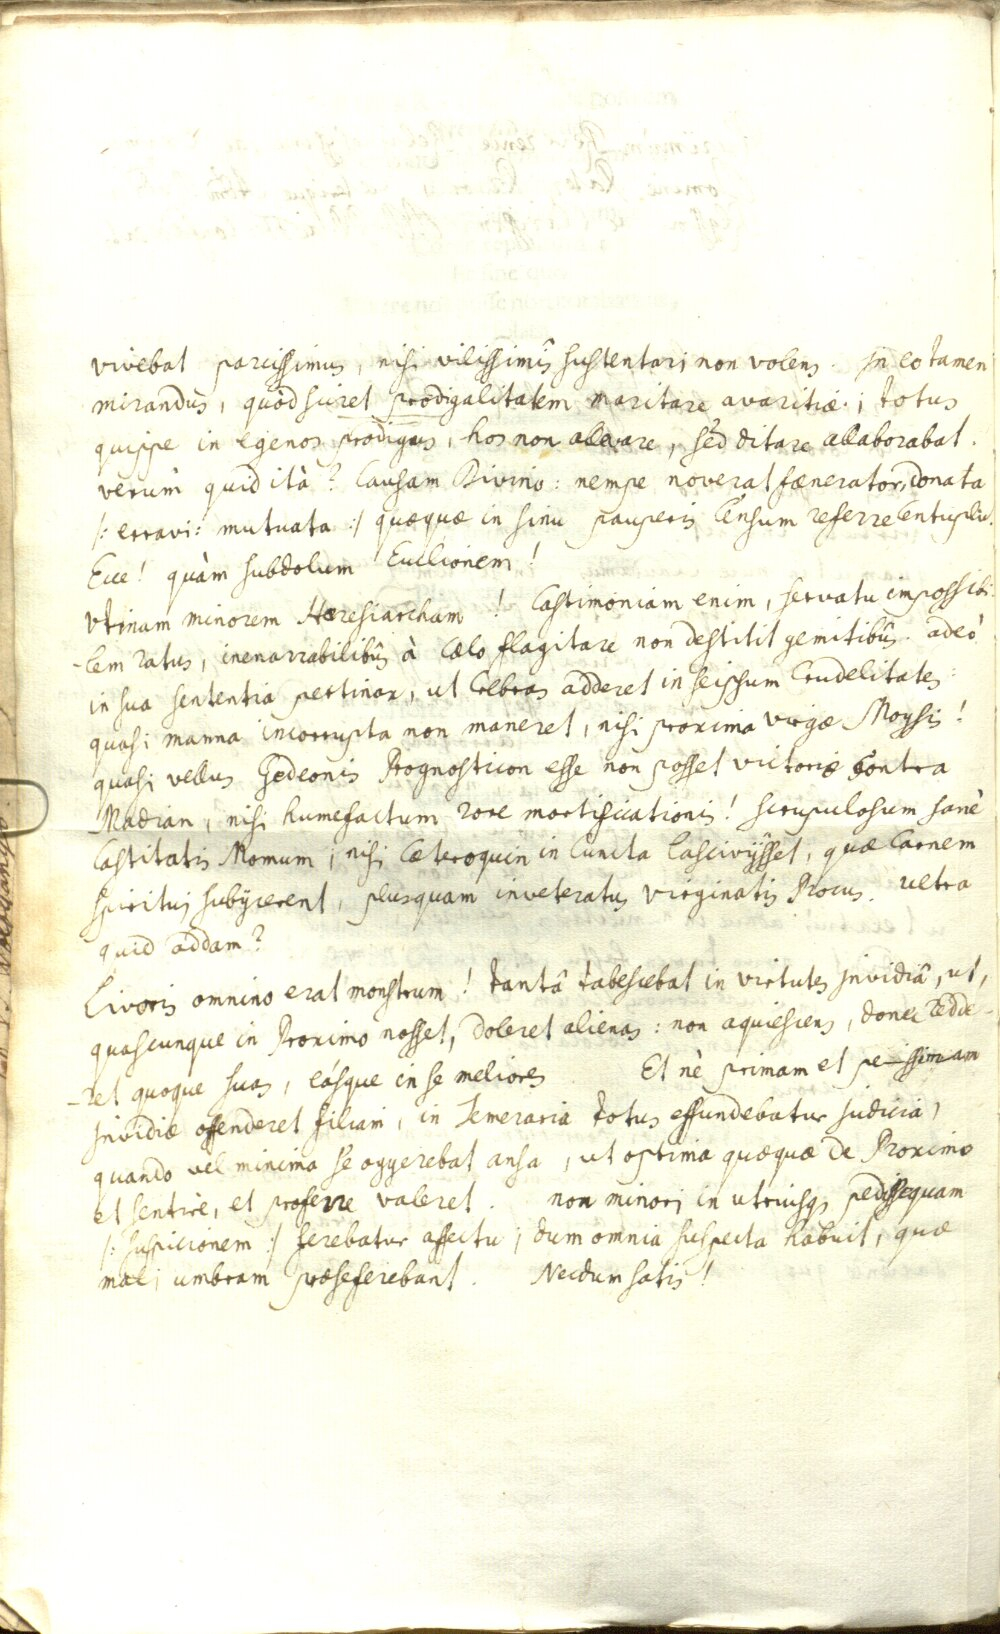 vivebat parcissimus, nisi vilissimis sustentari non volens. In eo tamen
mirandus, quòd sciret prodigalitatem maritare avaritiæ; totus
quippe in egenos prodigus, hos non alevare, sed ditare allaborabat.
verùm quid ità? Causam Divino: nempe noverat fænerator, donata
/: erravi: mutuata :/ quæquæ in sinu pauperis Censum referre Centuplū.
Ecce! quàm subdolum Euclionem!
Utinam minorem Hæresiarcham! Castimoniam enim, servatu impossibi-
-lem ratus, inenarrabilibus à Cælo flagitare non destitit gemitibus. adeò
in sua sententia pertinax, ut Crebras adderet in seipsum Crudelitates:
quasi manna incorrupta non maneret, nisi proxima virgæ Moysis!
quasi vellus Gedeonis Prognosticon esse non posset victoriæ Contra
Madian, nisi humefactum rore mortificationis! scrupulosum sanè
Castitatis Momum; nisi Cæteroquin in Cuncta lascivijsset, quæ Carnem
spiritui subijcerent, plusquam inveteratus virginatis Procus. Ultra
quid addam?
Livoris omnino erat monstrum! tantâ tabescebat in virtutes invidiâ, ut,
quascunque in Proximo nosset, doleret alienas: non aquiescens, donec redde-
-ret quoque suas, eásque in se meliores Et nè primam et pessimam
invidiæ offenderet filiam, in Temeraria totus effundebatur judicia,
quando vel minima se oggerebat ansa, ut optima quæquæ de Proximo
et sentire, et proferre valeret. non minori in utriusqs pedissequam
/: suspicionem :/ ferebatur affectu; dum omnia suspecta habuit, quæ
mali umbram præseferebant. Necdum satis!